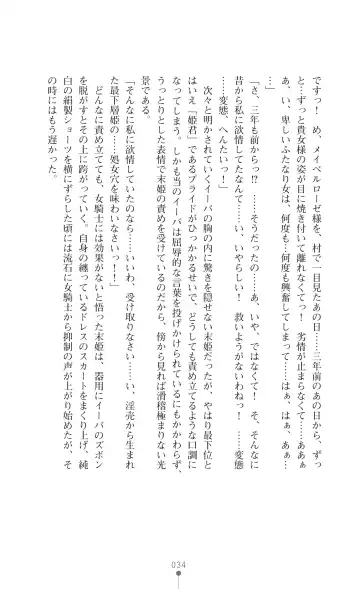 ですっ！　め、メイベルローゼ様を、村で一目見たあの日……三年前のあの日から、ずっ
と…ずっと貴女様の姿が目に焼き付いて離れなくてっ！　劣情が止まらなくて……ああぁ
あ、い、卑しいふたなり女は、何度も…何度も興奮してしまって……はぁ、はぁ、あぁ…
…」
「さ、三年も前からっ⁉　……そうだったの……あ、いや、ではなくて！　そ、そんなに
昔から私に欲情してたなんて……い、いやらしい！　救いようがないわねっ！　……変態
……変態、へんたいいっ！」
　次々と明かされていくイーバの胸の内に驚きを隠せない末姫だったが、やはり最下位と
はいえ「姫君」であるプライドがひっかかるせいで、どうしても責め立てるような口調に
なってしまう。しかも当のイーバは屈辱的な言葉を投げかけられているにもかかわらず、
うっとりとした表情で末姫の責めを受けているのだから、傍から見れば滑稽極まりない光
景である。
「そんなに私に欲情していたのなら……いいわ、受け取りなさい……い、淫売から生まれ
た最下層姫の……処女穴を味わいなさいっ！！」
　どんなに責め立てても、女騎士には効果がないと悟った末姫は、器用にイーバのズボン
を脱がすとその上に跨がっていく。自身の纏っているドレスのスカートをまくり上げ、純
白の絹製ショーツを横にずらした頃には流石に女騎士から抑制の声が上がり始めたが、そ
の時にはもう遅かった。
034